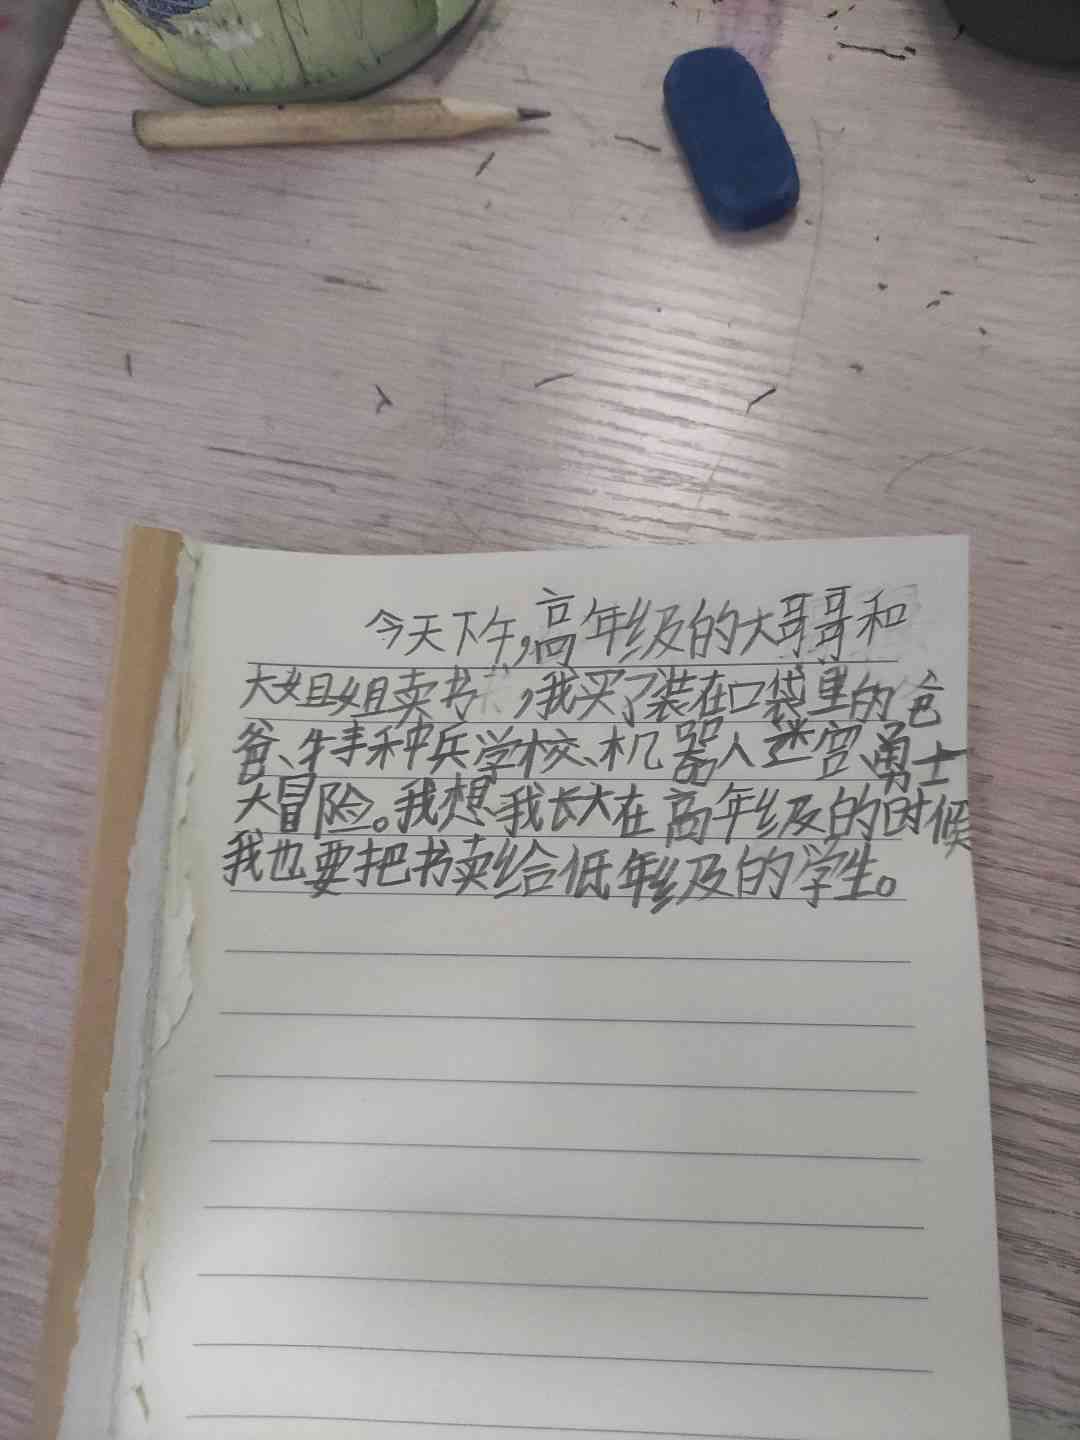 今天下午,高年级的大哥哥和
大姐姐卖书,我买了装在口袋里的爸
爸、特种兵学校、机器人迷宫、勇士
大冒险。我想,我长大在高年级的时候
我也要把书卖给低年级的学生。